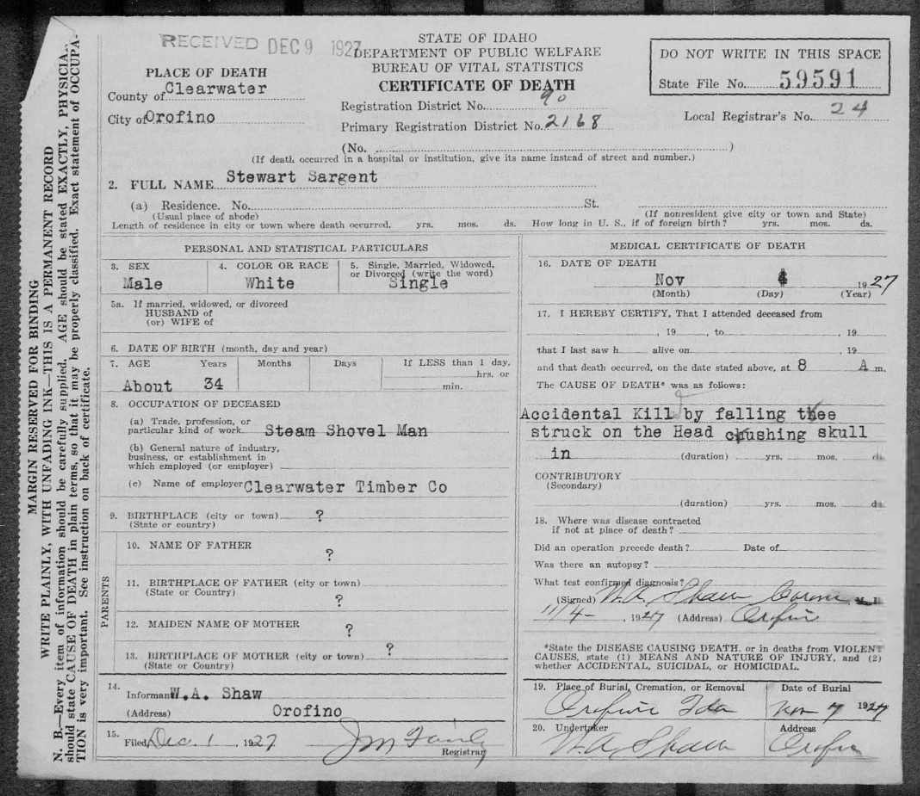 RECEIVED DEC 9 1927
STATE OF IDAHO
DEPARTMENT OF PUBLIC WELFARE
BUREAU OF VITAL STATISTICS
CERTIFICATE OF DEATH
DO NOT WRITE IN THIS SPACE
State File No. 59591
PLACE OF DEATH
County of Clearwater
City of Orofino
Registration District No. 90
Primary Registration District No. 2168
Local Registrar's No. 24
(No. )
(If death occurred in a hospital or institution, give its name instead of street and number.)
2. FULL NAME Stewart Sargent
(a) Residence. No. St.
(Usual place of abode) (If nonresident give city or town and State)
Length of residence in city or town where death occurred. yrs. mos. ds. How long in U. S., if of foreign birth? yrs. mos. ds.
PERSONAL AND STATISTICAL PARTICULARS
3. SEX
Male
4. COLOR OR RACE
White
5. Single, Married, Widowed,
or Divorced (write the word)
Single
5a. If married, widowed, or divorced
HUSBAND of
(or) WIFE of
6. DATE OF BIRTH (month, day and year)
7. AGE Years Months Days If LESS than 1 day,
hrs. or
min.
About 34
8. OCCUPATION OF DECEASED
(a) Trade, profession, or
particular kind of work Steam Shovel Man
(b) General nature of industry,
business, or establishment in
which employed (or employer)
(c) Name of employer Clearwater Timber Co
9. BIRTHPLACE (city or town) ?
(State or country)
PARENTS
10. NAME OF FATHER
?
11. BIRTHPLACE OF FATHER (city or town)
(State or Country) ?
12. MAIDEN NAME OF MOTHER
?
13. BIRTHPLACE OF MOTHER (city or town) ?
(State or Country)
14.
Informant W.A. Shaw
(Address) Orofino
15.
Filed Dec. 1 1927
Registrar
MEDICAL CERTIFICATE OF DEATH
16. DATE OF DEATH
Nov 4 1927
(Month) (Day) (Year)
17. I HEREBY CERTIFY, That I attended deceased from
, 19 , to , 19
that I last saw h alive on , 19
and that death occurred, on the date stated above, at 8 A m.
The CAUSE OF DEATH* was as follows:
Accidental Kill by falling tree
struck on the Head crushing skull
in (duration) yrs. mos. ds.
CONTRIBUTORY
(Secondary)
(duration) yrs. mos. ds.
18. Where was disease contracted
if not at place of death?
Did an operation precede death? Date of
Was there an autopsy?
What test confirmed diagnosis?
(Signed) W.A. Shaw Coroner M. D.
11/4- , 1927 (Address) Orofino
*State the DISEASE CAUSING DEATH, or in deaths from VIOLENT
CAUSES, state (1) MEANS AND NATURE OF INJURY, and (2)
whether ACCIDENTAL, SUICIDAL, or HOMICIDAL.
19. Place of Burial, Cremation, or Removal
Orofino Ida
Date of Burial
Nov 7 1927
20. Undertaker
W.A. Shaw
Address
Orofino
MARGIN RESERVED FOR BINDING
WRITE PLAINLY, WITH UNFADING INK—THIS IS A PERMANENT RECORD
N. B.—Every item of information should be carefully supplied. AGE should be stated EXACTLY, PHYSICIA
should state CAUSE OF DEATH in plain terms, so that it may be properly classified. Exact statement of OCCUPA-
TION is very important. See instruction on back of certificate.